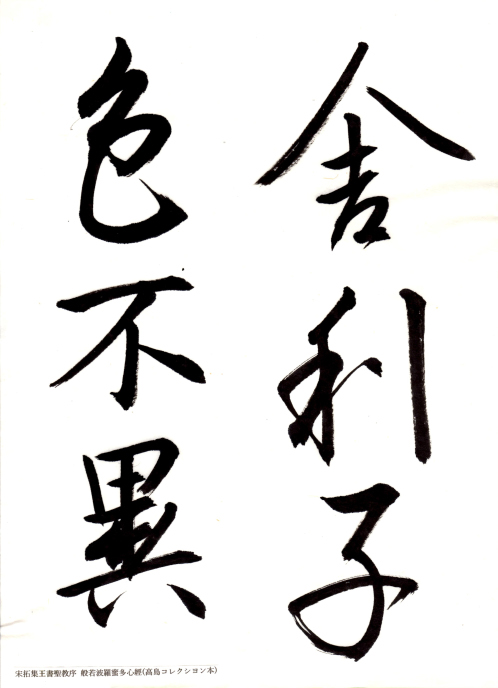 舎利子
色不異
宋拓集王書聖教序 般若波羅蜜多心經(高島コレクション本)